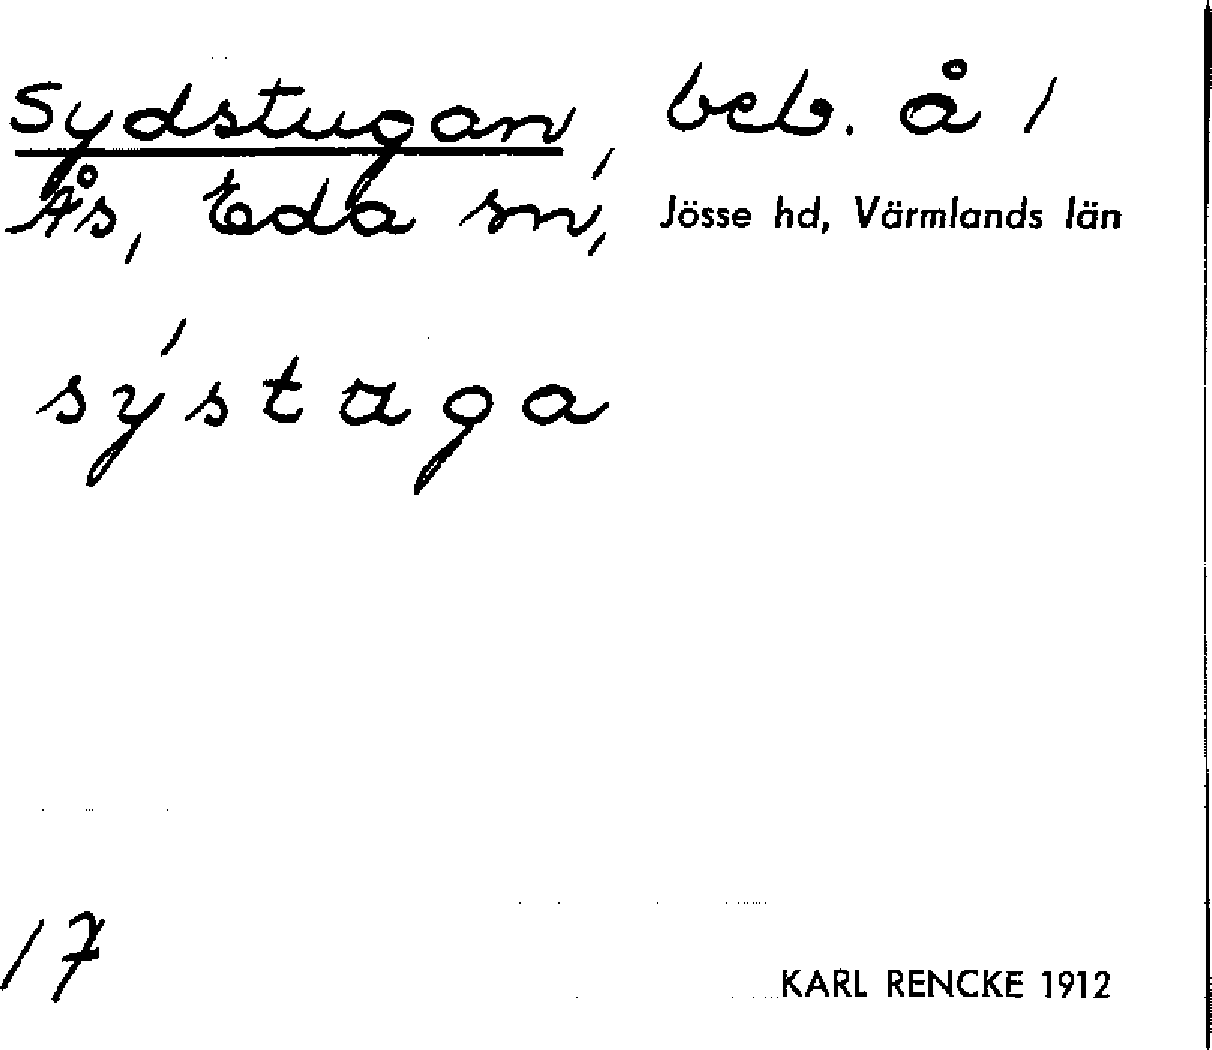 Sydstugan, beb. å 1
Ås, Eda sn, Jösse hd, Värmlands län
sýstaga
17
KARL RENCKE 1912